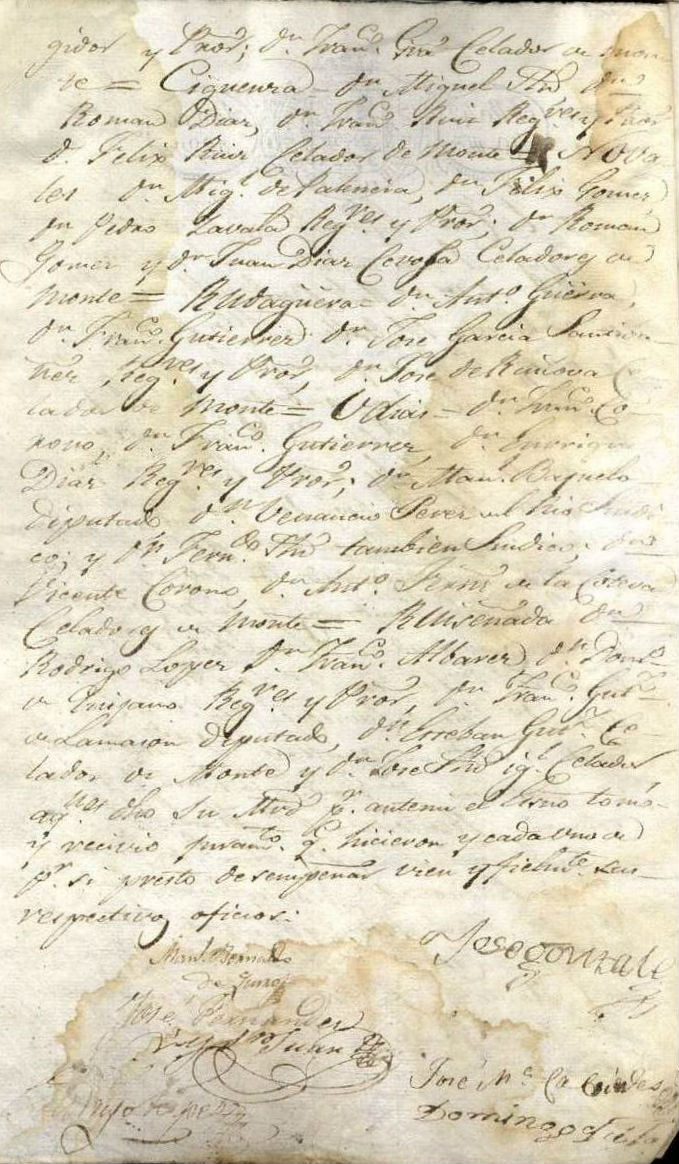 gidor y Pror; dn. Franco. Celador de mon-
te = Cigüenza dn. Miguel dn.
Roman Diaz, dn. Franco. Ruiz Regres. y Pror
d. Felix Ruiz Celador de Monte = Nova
les dn. Migl. de Palencia, dn. Felix Gomez,
dn Pedro Zavala Regres. y Pror; dn. Roman
Gomez y dn Juan Diaz Celadores de
Monte = Rudagüera = dn. Anto. Guerra,
dn. Franco. Gutierrez dn. Jose Garcia
Regres. y Pror, dn. Jose de
lador de Monte = Udias = dn. Franco. Co-
rono, dn. Franco. Gutierrez, dn. Enrique
Diaz Regres. y Pror; dn. Manl.
Diputado dn. Venancio Perez del Rio Sindi-
co; y dn. Ferndo. tambien Sindico; dn.
Vicente Corono, dn. Anto. de la
Celadores de Monte = Ruiseñada dn.
Rodrigo Lopez dn. Franco. Albarez dn.
de Regres. y Pror, dn. Franco. Gutz.
de Lamason Diputado, dn. Esteban Gutz. Ce
lador de Monte y dn. Jose igl. Celador,
aqnes. dho Su Mrd pr. antemi el Esno tomó-
y recivio juramto. q. hicieron y cada uno de
pr. si presto desempeñar vien y fielmte. sus-
respectivos oficios:
Jose Gonzale
Manl. Bernaldo
de
Jose Fernandez
José Ma.
Domingo